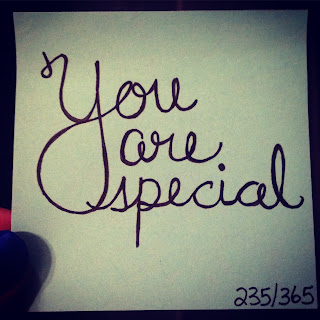 You
are
special
235/365